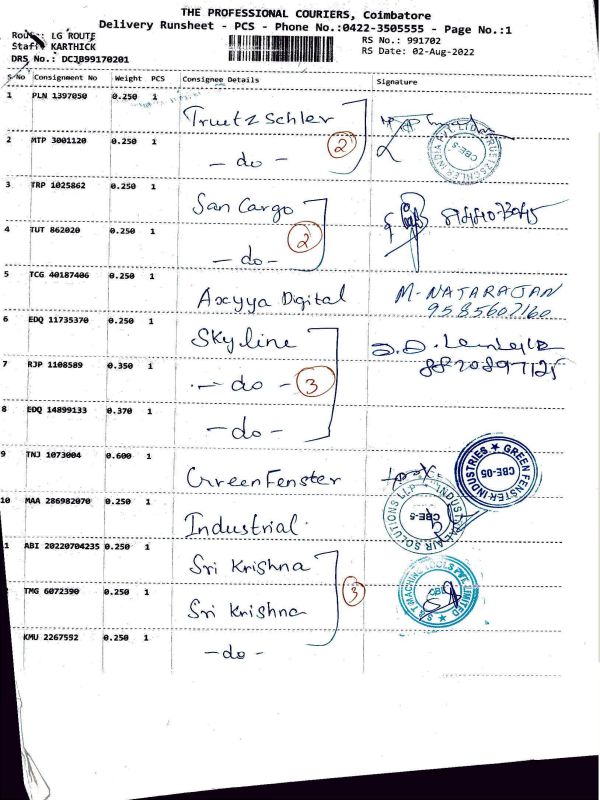 THE PROFESSIONAL COURIERS, Coimbatore
Delivery Runsheet - PCS - Phone No.:0422-3505555 - Page No.:1
Route: LG ROUTE
RS No.: 991702
Staff: KARTHICK
RS Date: 02-Aug-2022
DRS No.: DCJB99170201
S No Consignment No Weight PCS Consignee Details Signature
1 PLN 1397050 0.250 1 Truetzschler
2 MTP 3001120 0.250 1 - do - 2
3 TRP 1025862 0.250 1 San Cargo
4 TUT 862020 0.250 1 - do - 2
5 TCG 40187406 0.250 1 Axyya Digital M. NATARAJAN
9585607160
6 EDQ 11735370 0.250 1 Skyline
7 RJP 1108589 0.350 1 - do - 3 8820897125
8 EDQ 14899133 0.370 1 - do -
9 TNJ 1073004 0.600 1 Green Fenster GREEN FENSTER INDUSTRIES CBE-05
10 MAA 286982070 0.250 1 Industrial CBE-5
1 ABI 20220704235 0.250 1 Sri Krishna
TMG 6072390 0.250 1 Sri Krishna 3
KMU 2267592 0.250 1 - do -